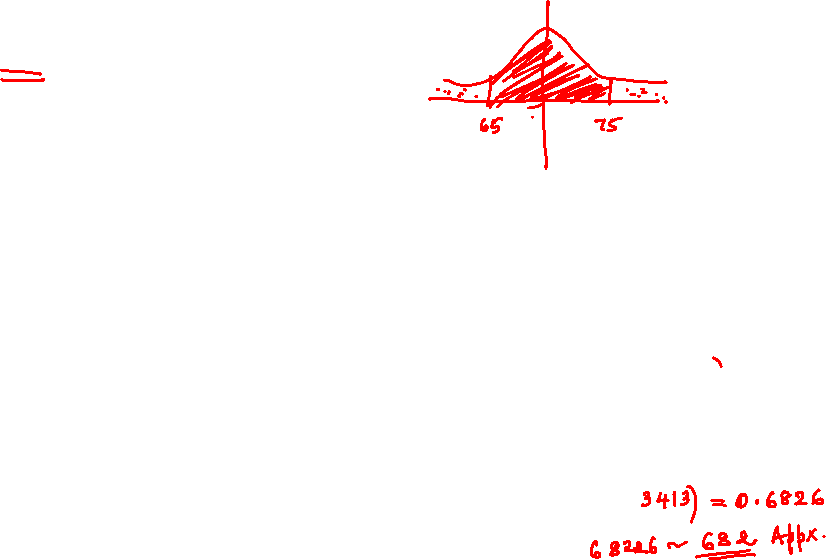 65 75
3413) = 0.6826
68226 ~ 682 Appx.